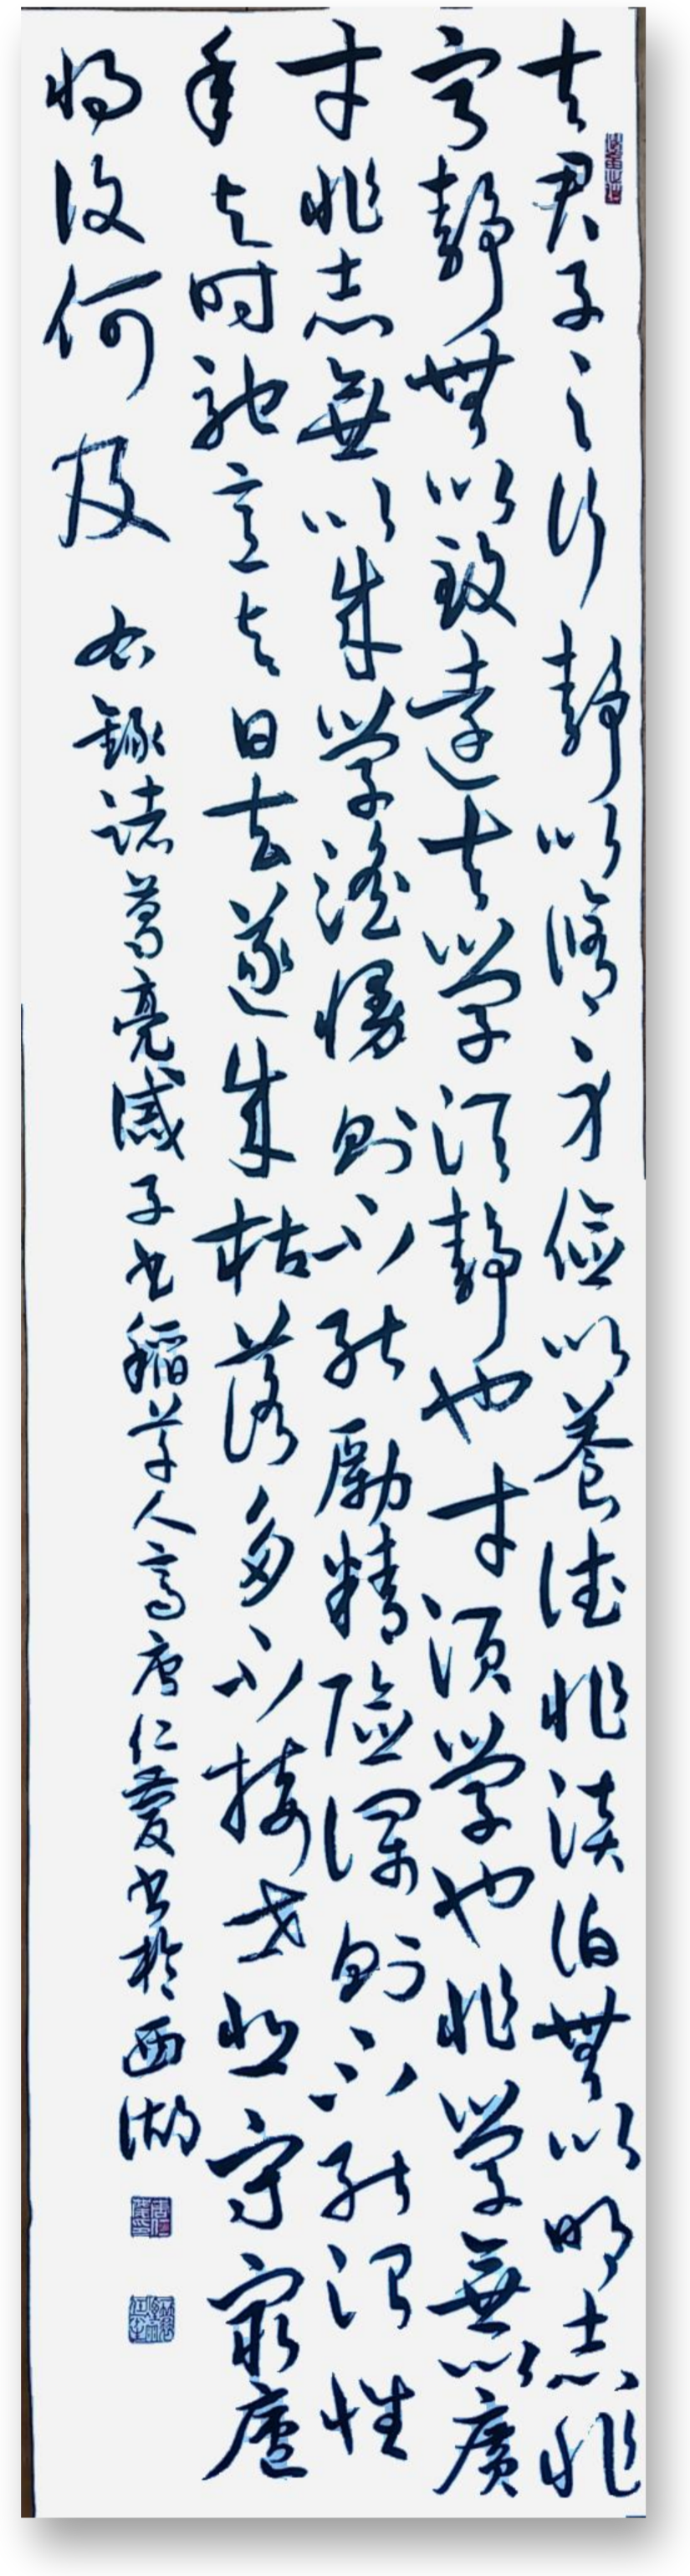 夫君子之行静以修身儉以養德非淡泊無以明志非
宁静無以致遠夫学须静也才须学也非学無以廣
才非志無以成学淫慢则不能勵精險躁则不能治性
年与时馳意与日去遂成枯落多不接世悲守窮廬
将復何及
右錄诸葛亮誡子书稻草人高唐仁书於西湖